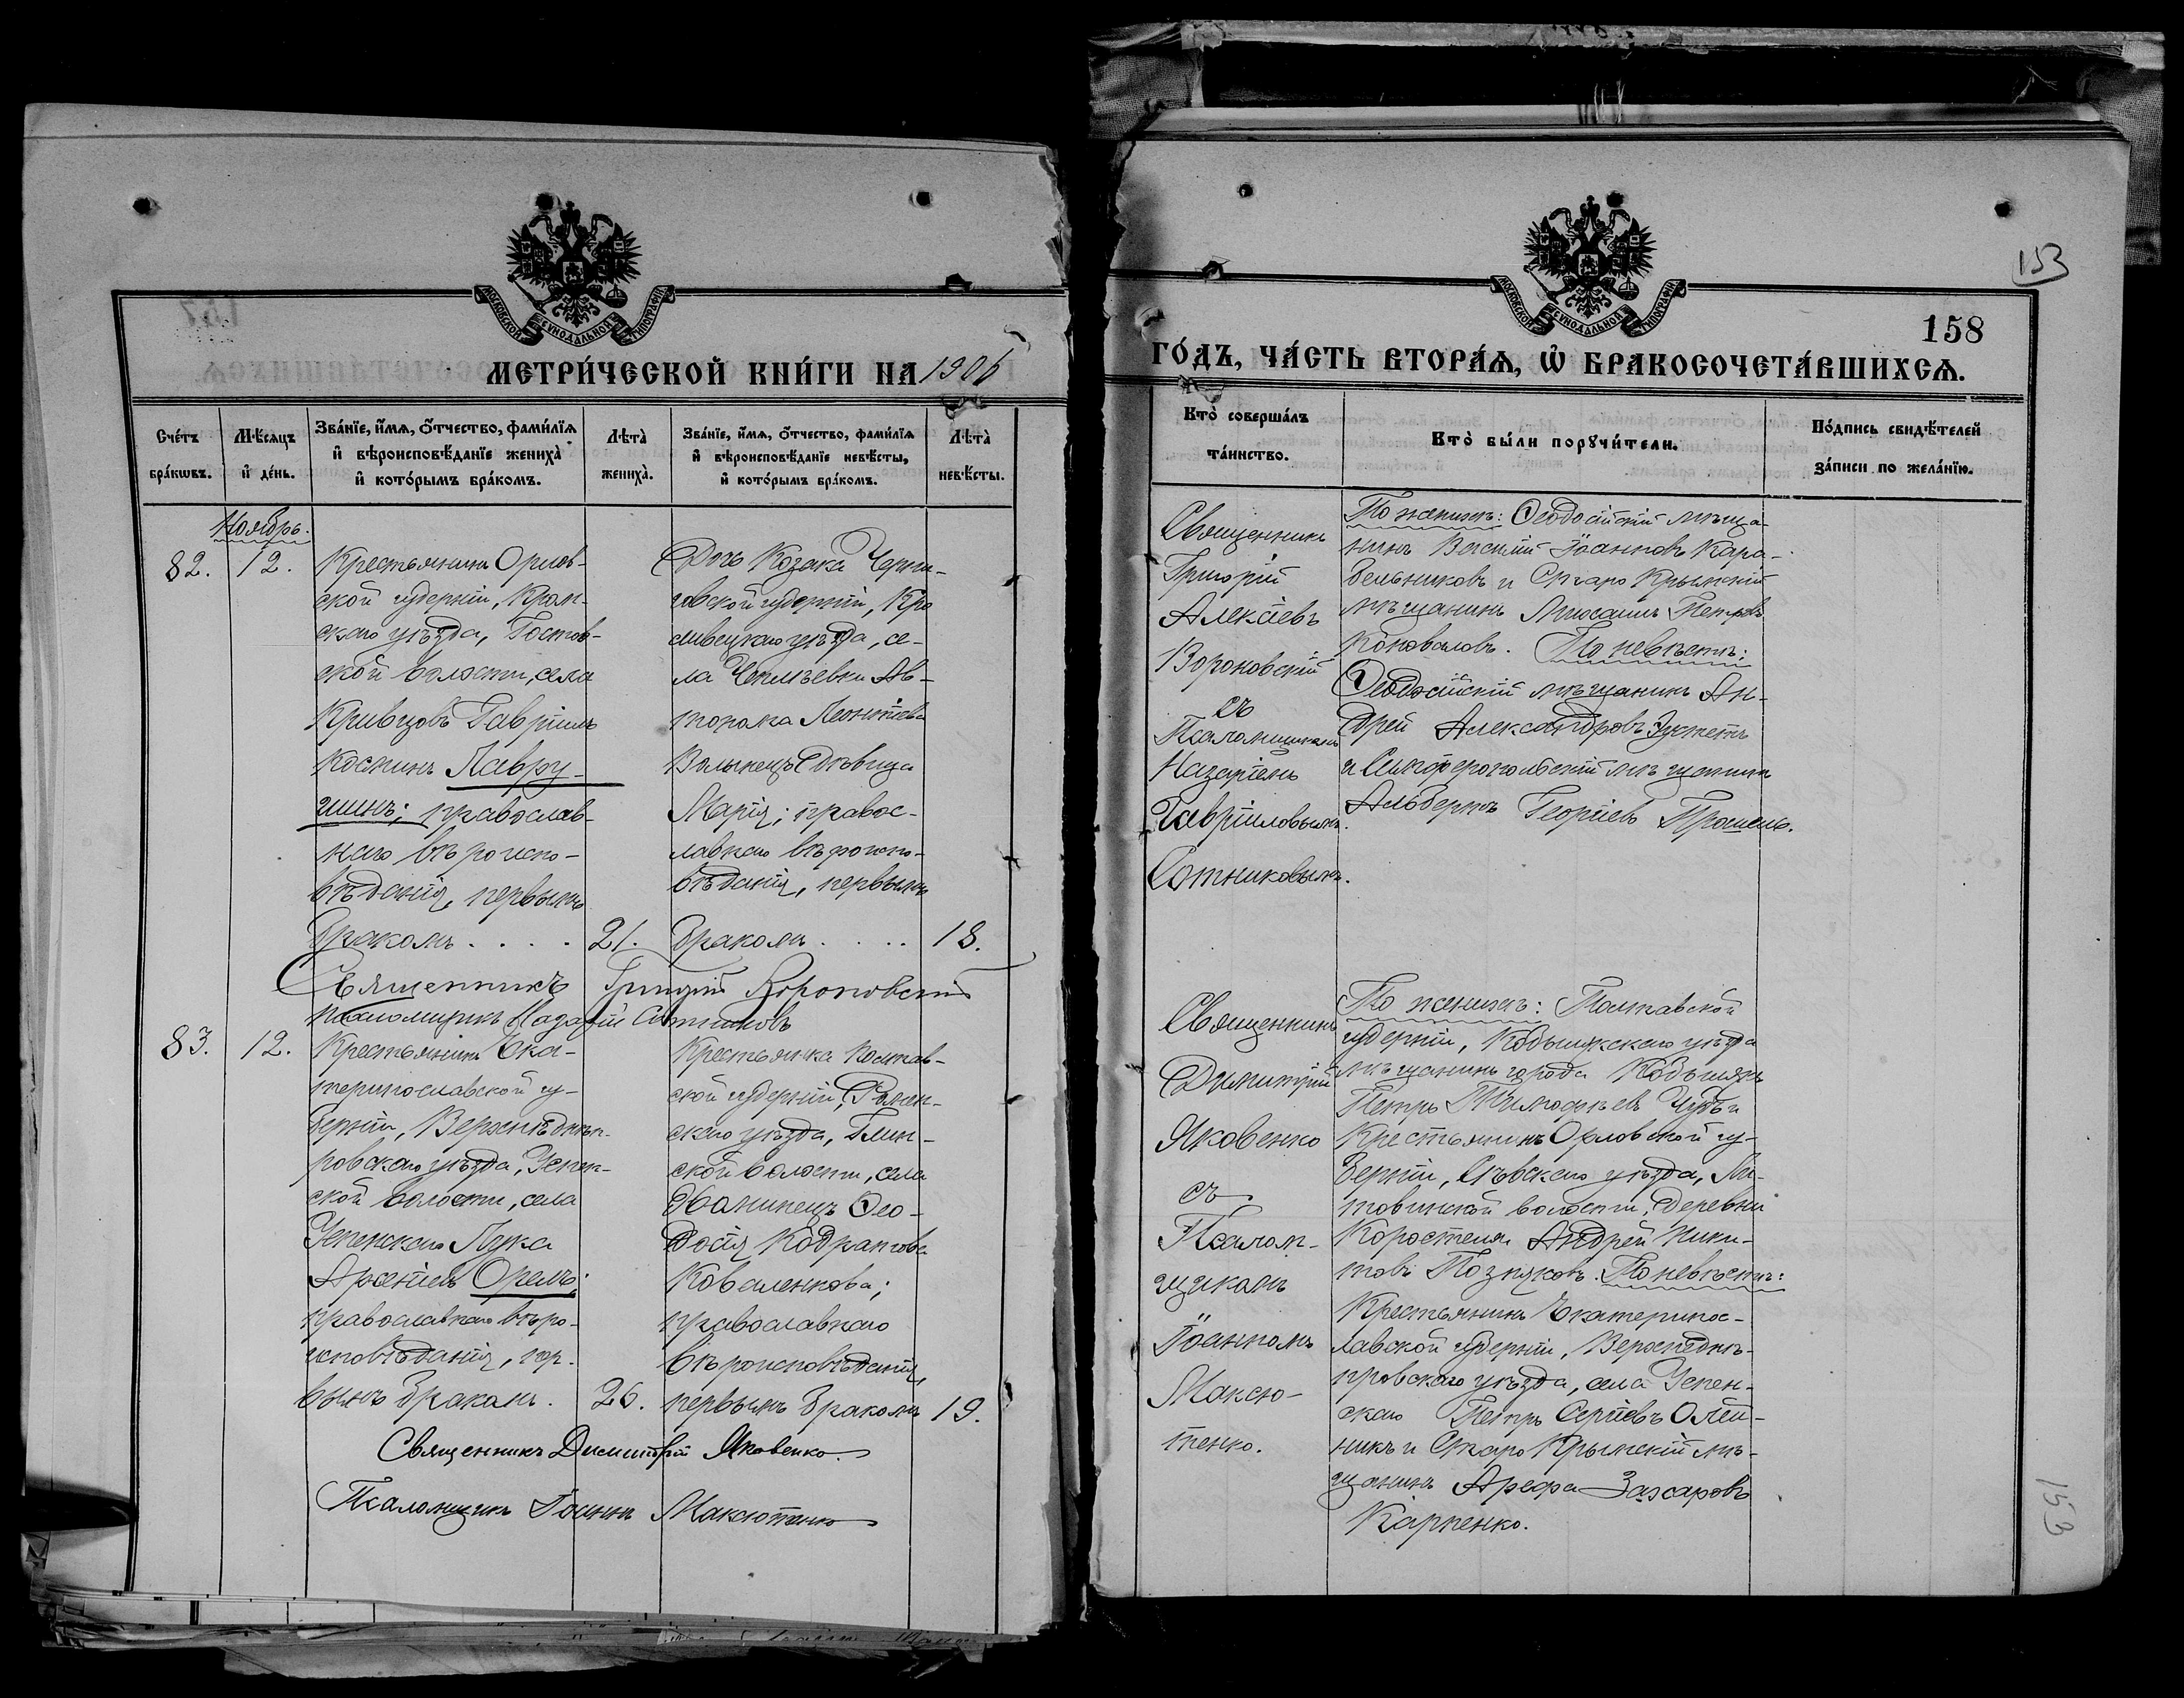 МОСКОВСКОЙ СѴНОДАЛЬНОЙ ТИПОГРАФІИ
МЕТРИ́ЧЕСКОЙ КНИ́ГИ НА 1906
Сче́тъ бра́кѡвъ.
Мѣ́сяцъ и҆ де́нь.
Зва́нїе, и҆́мѧ, ѻ҆́тчество, фами́лїѧ и҆ вѣроисповѣ́данїе жениха̀ и҆ кото́рымъ бра́комъ.
Лѣта̀ жениха̀.
Зва́нїе, и҆́мѧ, ѻ҆́тчество, фами́лїѧ и҆ вѣроисповѣ́данїе невѣ́сты, и҆ кото́рымъ бра́комъ.
Лѣта̀ невѣ́сты.
Ноябрь.
82.
12.
Крестьянинъ Орлов-
ской губерніи, Кром-
скаго уѣзда, Гостов-
ской волости, села
Кривцовъ Гавріилъ
Косминъ Лавру-
шинъ; православ-
наго вѣроиспо-
вѣданія, первымъ
бракомъ. . . . .
21.
Дочь Козака Черни-
говской губерніи, Кро
левецкаго уѣзда, се-
ла Чеплѣевки Ав-
тонома Леонтіева
Волынецъ дѣвица
Марія; правос-
лавнаго вѣроиспо-
вѣданія, первымъ
бракомъ . . . .
18.
Священникъ Григорій Вороновскій
Псаломщикъ Назарій Сотниковъ
83.
12.
Крестьянинъ Ека-
теринославской гу-
берніи, Верхнеднѣп-
ровскаго уѣзда, Успен-
ской волости, села
Успенскаго Лука
Арсеніевъ Орелъ;
православнаго вѣро-
исповѣданія, пер-
вымъ бракомъ.
26.
Крестьянка Полтав-
ской губерніи, Ромен-
скаго уѣзда, Глин-
ской волости, села
Ѳео-
досія Кодратова
Коваленкова;
православнаго
вѣроисповѣданія,
первымъ бракомъ
19.
Священникъ Димитрій Яковенко
Псаломщикъ Іоаннъ Максютенко
153
МОСКОВСКОЙ СѴНОДАЛЬНОЙ ТИПОГРАФІИ
158
ГО́ДЪ, ЧА́СТЬ ВТОРА́Ѧ, Ѡ҆ БРАКОСОЧЕТА́ВШИХСѦ.
Кто̀ соверша́лъ та́инство.
Кто̀ бы́ли порꙋчи́тели.
По́дпись свидѣ́телей за́писи по жела́нїю.
Священникъ
Григорій
Алексѣевъ
Вороновскій
съ
Псаломщикомъ
Назаріемъ
Гавріиловымъ
Сотниковымъ.
По женихѣ: Ѳеодосійскій мѣща-
нинъ Василій Іоанновъ Кара-
бельниковъ и Старо Крымскій
мѣщанинъ Михаилъ Петровъ
Коноваловъ. По невѣстѣ:
Ѳеодосійскій мѣщанинъ Ан-
дрей Александровъ
и Симферопольскій мѣщанинъ
Альбертъ Георгіевъ
Священникъ
Димитрій
Яковенко
съ
Псалом-
щикомъ
Іоанномъ
Максю-
тенко.
По женихѣ: Полтавской
губерніи, Кобыляжскаго уѣзда
мѣщанинъ города Кобылякъ
Петръ Тимофѣевъ Чубъ и
Крестьянинъ Орловской гу-
берніи, Сѣвскаго уѣзда, Ли-
товинской волости, деревни
Коростеля Андрей Ники-
товъ Позняковъ. По невѣстѣ:
Крестьянинъ Екатеринос-
лавской губерніи, Верхнеднѣ-
провскаго уѣзда, села Успен-
скаго Петръ Сергіевъ Олей-
никъ и Старо Крымскій мѣ-
щанинъ Арефа Захаровъ
Карпенко.
153